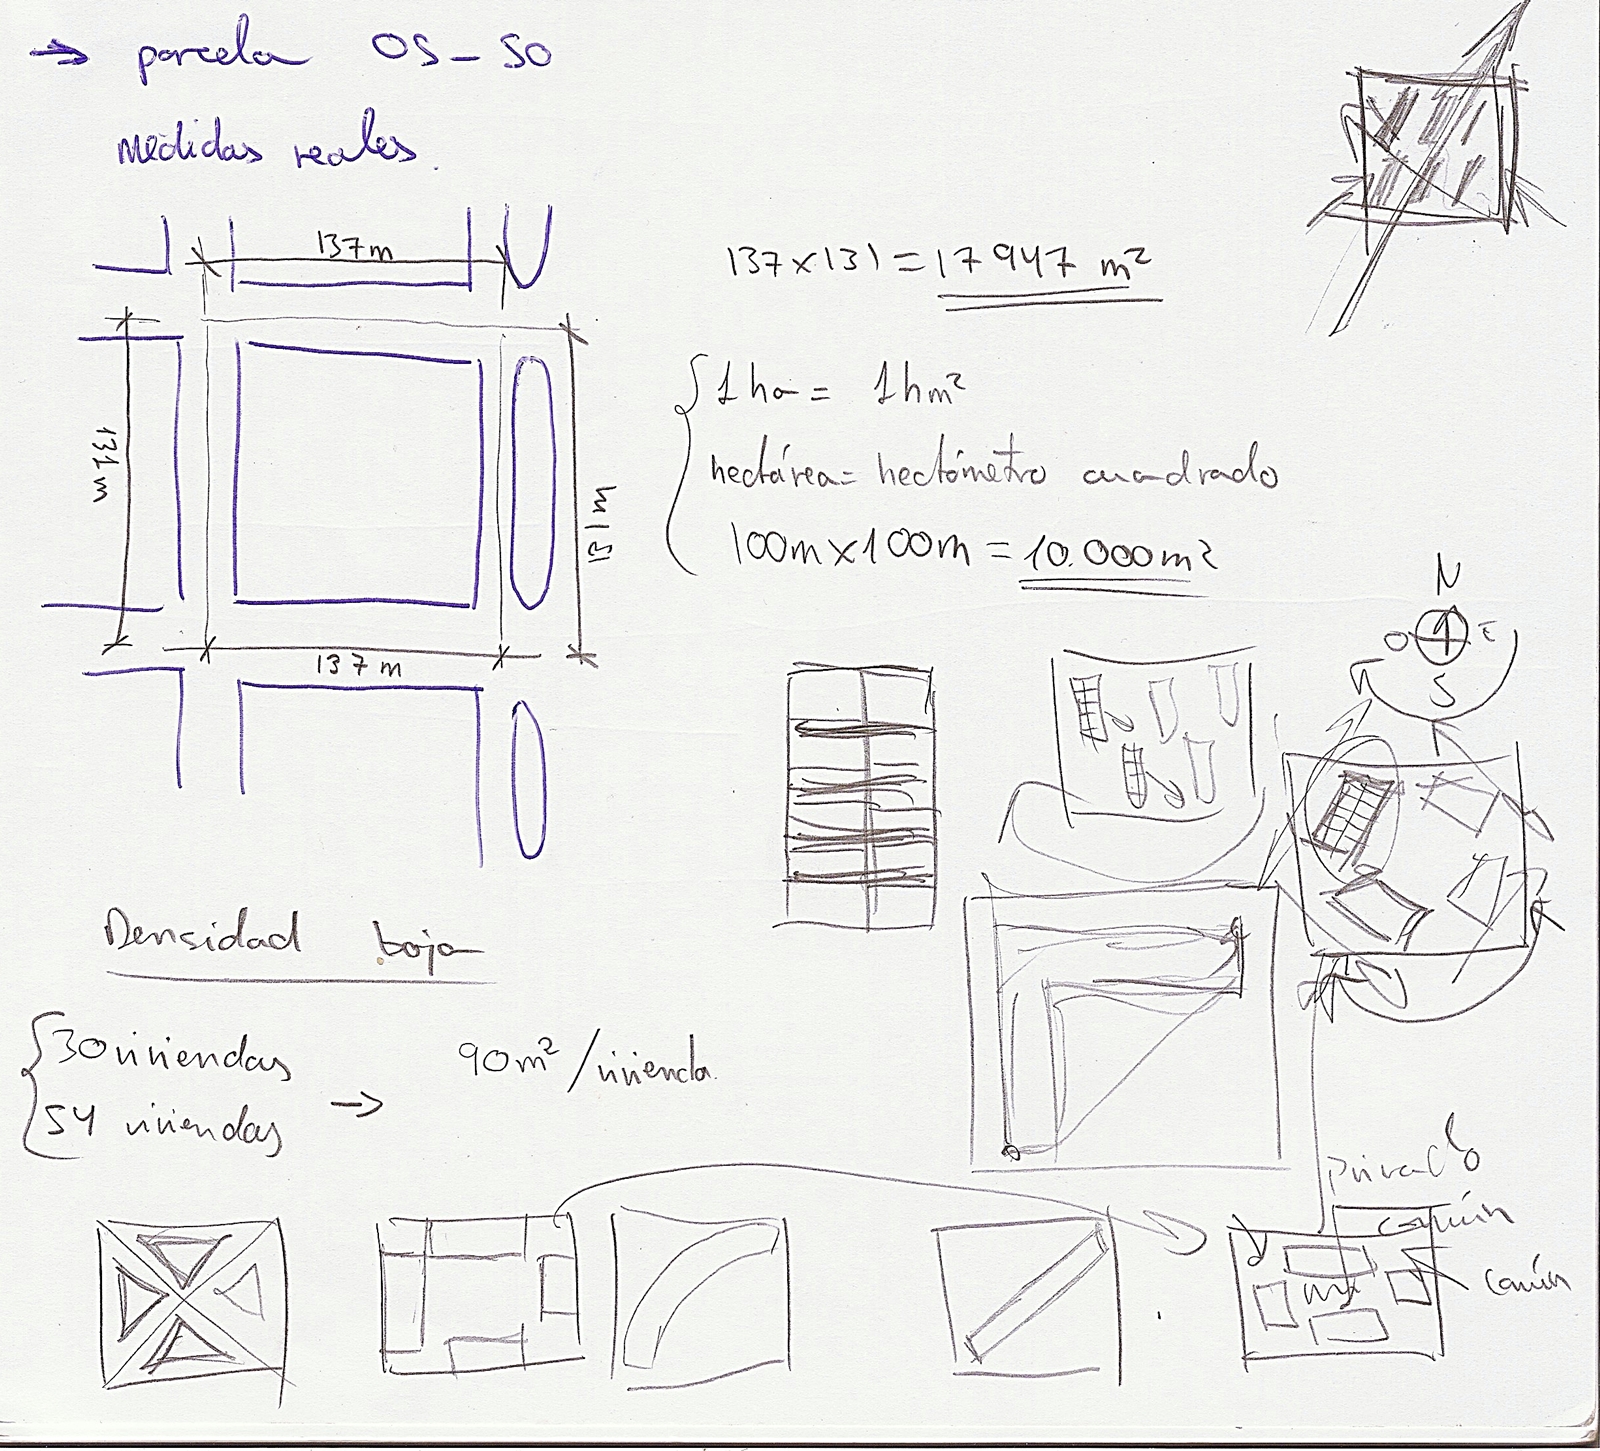 → parcela OS-SO
medidas reales.
137m
137×131 = 17947 m²
131m
131m
137m
1 ha = 1 hm²
hectárea = hectómetro cuadrado
100m×100m = 10.000m²
N
O E
S
Densidad baja
30 viviendas
54 viviendas
→ 90m²/vivienda.
privado
común
común